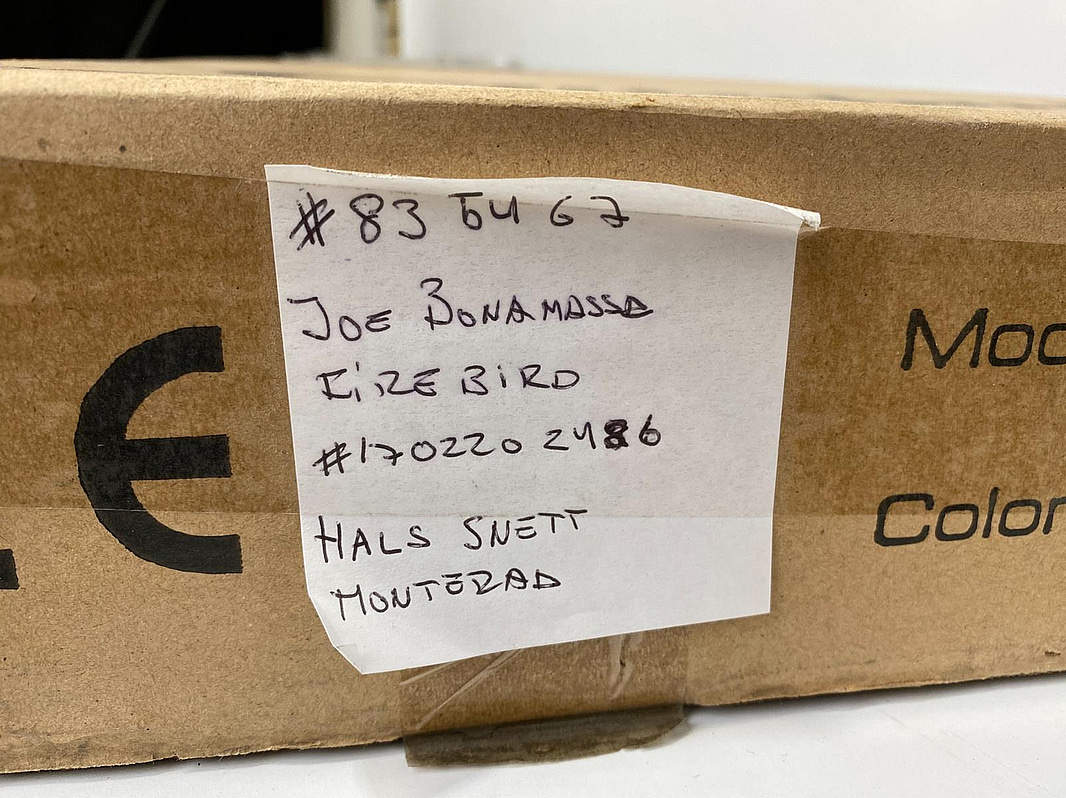 #83 54 67
JOE BONAMASSA
FIREBIRD
#1702202486
HALS SNETT
MONTERAD
CE
Color